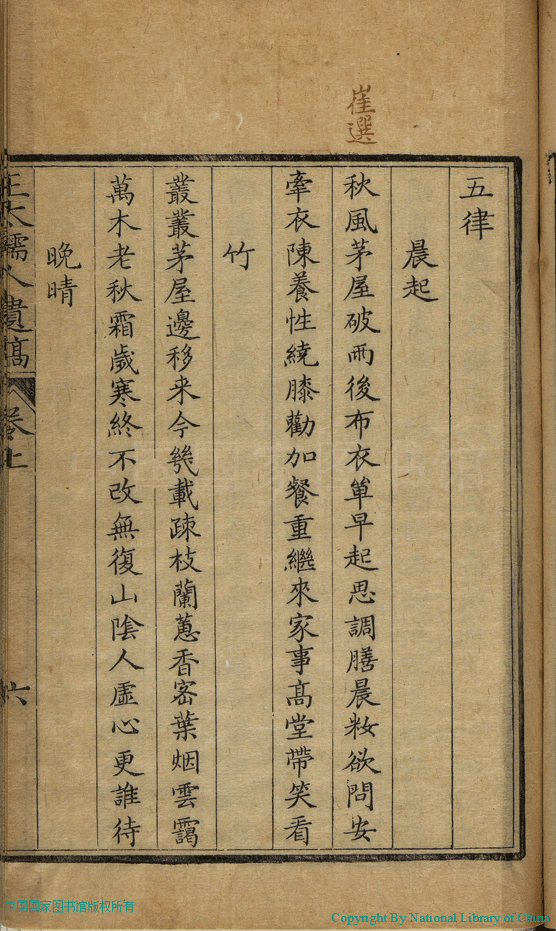 崔選
五律
晨起
秋風茅屋破雨後布衣單早起思調膳晨妝欲問安
牽衣陳養性繞膝勸加餐重繼來家事髙堂帶笑看
竹
叢叢茅屋邊移来今幾載疎枝蘭蕙香密葉烟雲靄
萬木老秋霜歲寒終不改無復山陰人虛心更誰待
晚晴
王大孺人遺髙 卷上
六
中国国家图书馆版权所有
Copyright By National Library of China